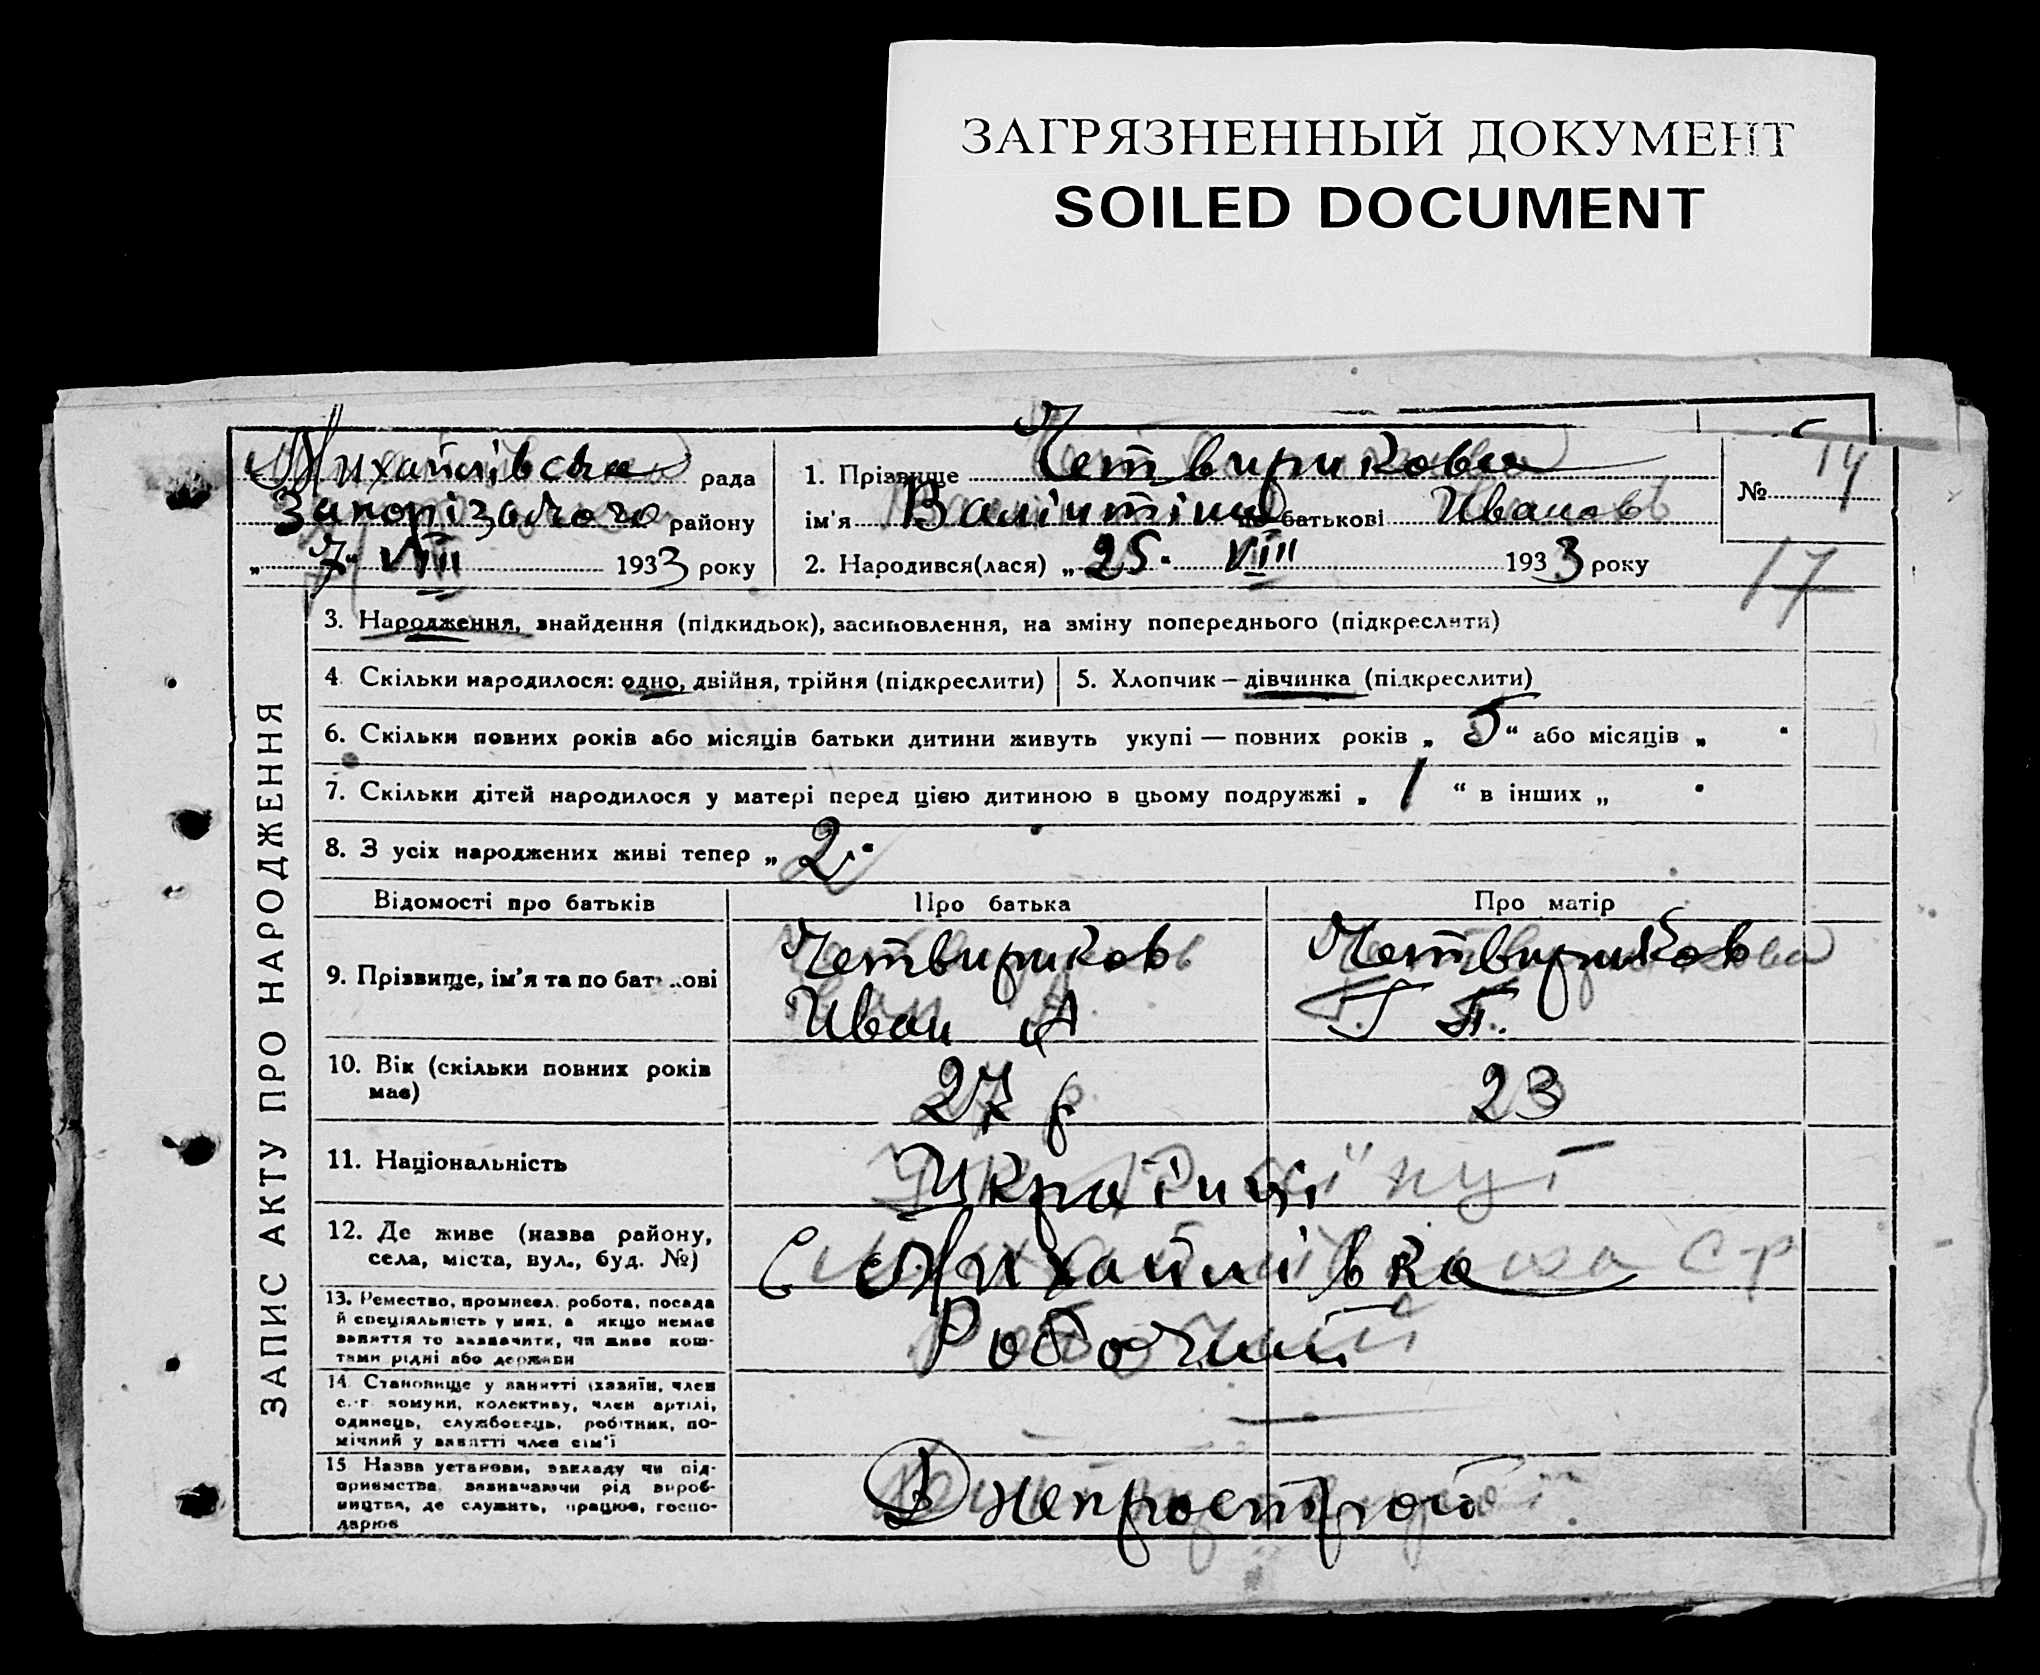 ЗАГРЯЗНЕННЫЙ ДОКУМЕНТ
SOILED DOCUMENT
Михайлівська рада
Запорізького району
„7“ VIII 1933 року
1. Прізвище Четвирикова
ім'я Валінтіна по батькові Иванов
2. Народився(лася) „25“ VIII 1933 року
№ 14
17
ЗАПИС АКТУ ПРО НАРОДЖЕННЯ
3. Народження, знайдення (підкидьок), засиновлення, на зміну попереднього (підкреслити)
4. Скільки народилося: одно, двійня, трійня (підкреслити)
5. Хлопчик — дівчинка (підкреслити)
6. Скільки повних років або місяців батьки дитини живуть укупі — повних років „ 5 “ або місяців „ “
7. Скільки дітей народилося у матері перед цією дитиною в цьому подружжі „ 1 “ в інших „ “
8. З усіх народжених живі тепер „ 2 “
Відомості про батьків Про батька Про матір
9. Прізвище, ім'я та по батькові
Четвириков
Иван А
Четвириков
Г П.
10. Вік (скільки повних років має)
27 р
23
11. Національність
Українці
12. Де живе (назва району,
села, міста, вул., буд. №)
С Михайлівка
13. Ремество, промисел, робота, посада
й спеціяльність у них, а якщо немає
заняття то зазначити, чи живе кош-
тами рідні або держави
Робочий
14. Становище у занятті (хазяїн, член
с.-г. комуни, колективу, член артілі,
одинець, службовець, робітник, по-
мічний у занятті член сім'ї
15. Назва установи, закладу чи під-
приємства, зазначаючи рід вироб-
ництва, де служить, працює, госпо-
дарює
Днепрострой